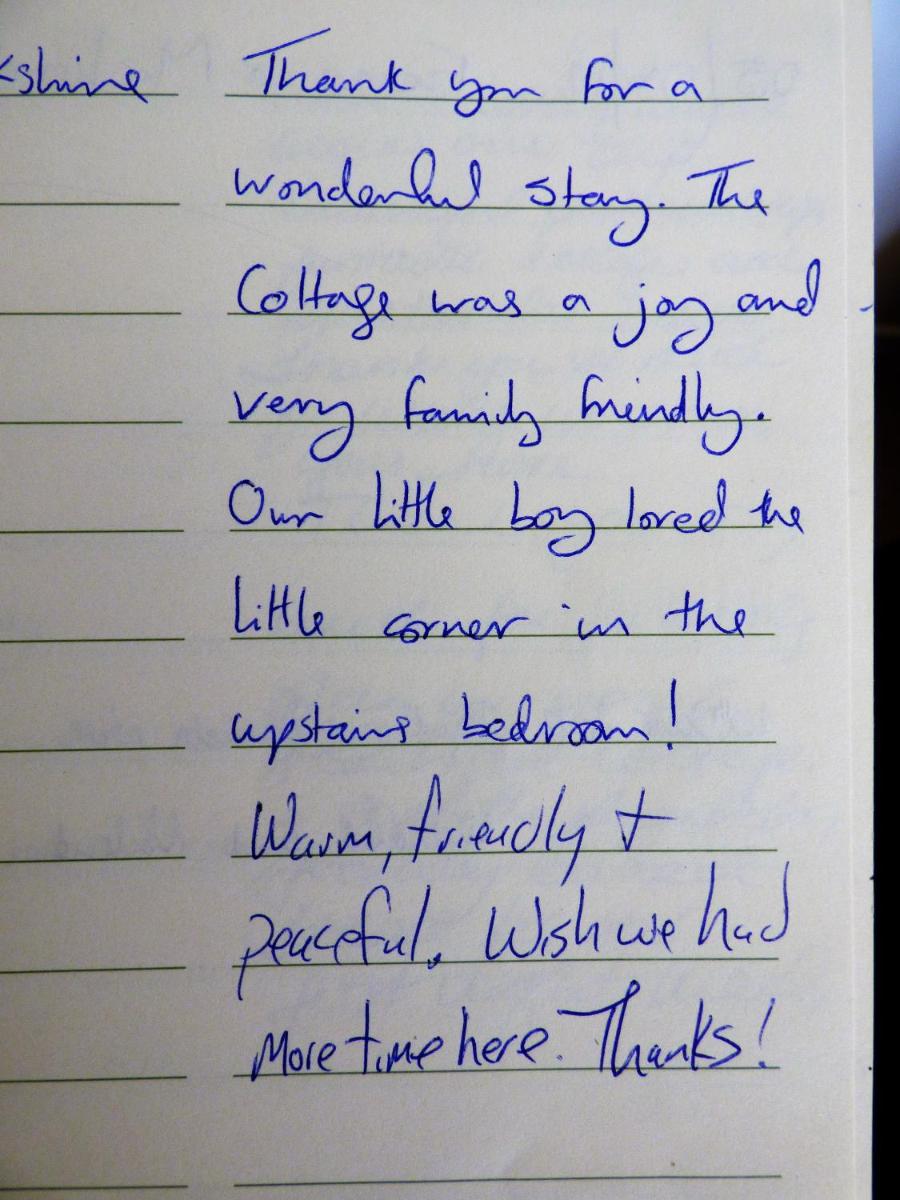 Thank you for a
wonderful stay. The
Cottage was a joy and
very family friendly.
Our little boy loved the
little corner in the
upstairs bedroom!
Warm, friendly +
peaceful. Wish we had
More time here. Thanks!